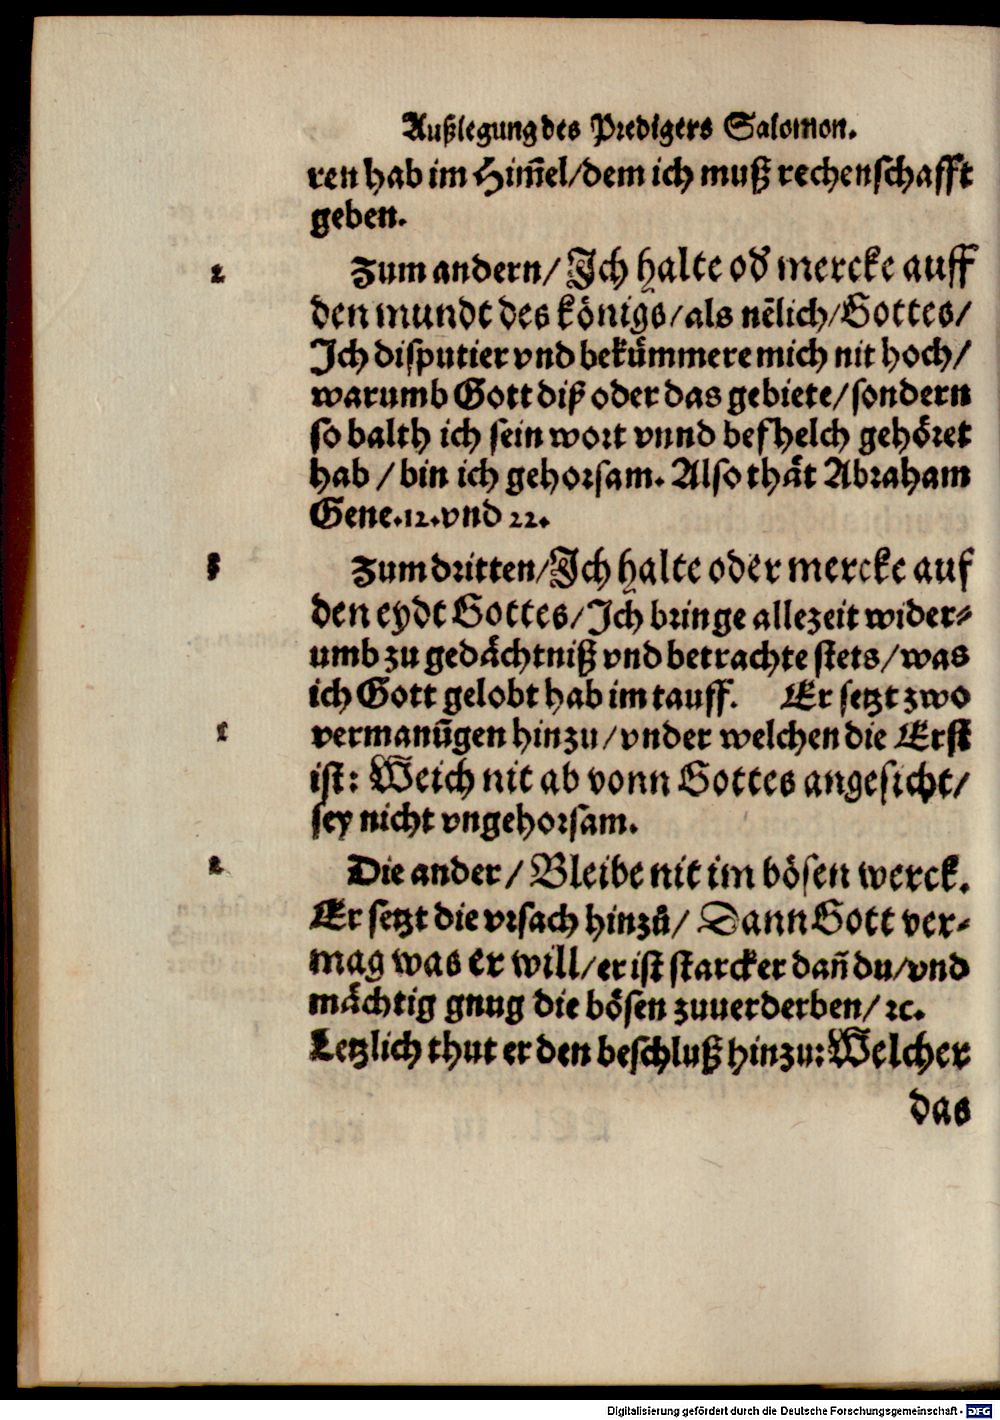 Außlegung des Predigers Salomon.
ren hab im Him̃el/dem ich muß rechenschafft
geben.
2 Zum andern/ Ich halte od̃ mercke auff
den mundt des königs/als nẽlich/Gottes/
Ich disputier vnd bekümmere mich nit hoch/
warumb Gott diß oder das gebiete/sondern
so balth ich sein wort vnnd befhelch gehöret
hab / bin ich gehorsam. Also thät Abraham
Gene.12.vnd 22.
3 Zum dritten/Ich halte oder mercke auf
den eydt Gottes/Ich bringe allezeit wider⸗
umb zu gedächtniß vnd betrachte stets/was
ich Gott gelobt hab im tauff. Er setzt zwo
1 vermanũgen hinzu/vnder welchen die Erst
ist: Weich nit ab vonn Gottes angesicht/
sey nicht vngehorsam.
2 Die ander/ Bleibe nit im bösen werck.
Er setzt die vrsach hinzů/ Dann Gott ver⸗
mag was er will/er ist starcker dañ du/vnd
mächtig gnug die bösen zuuerderben/ ꝛc.
Letzlich thut er den beschluß hinzu: Welcher
das
Digitalisierung gefördert durch die Deutsche Forschungsgemeinschaft - DFG